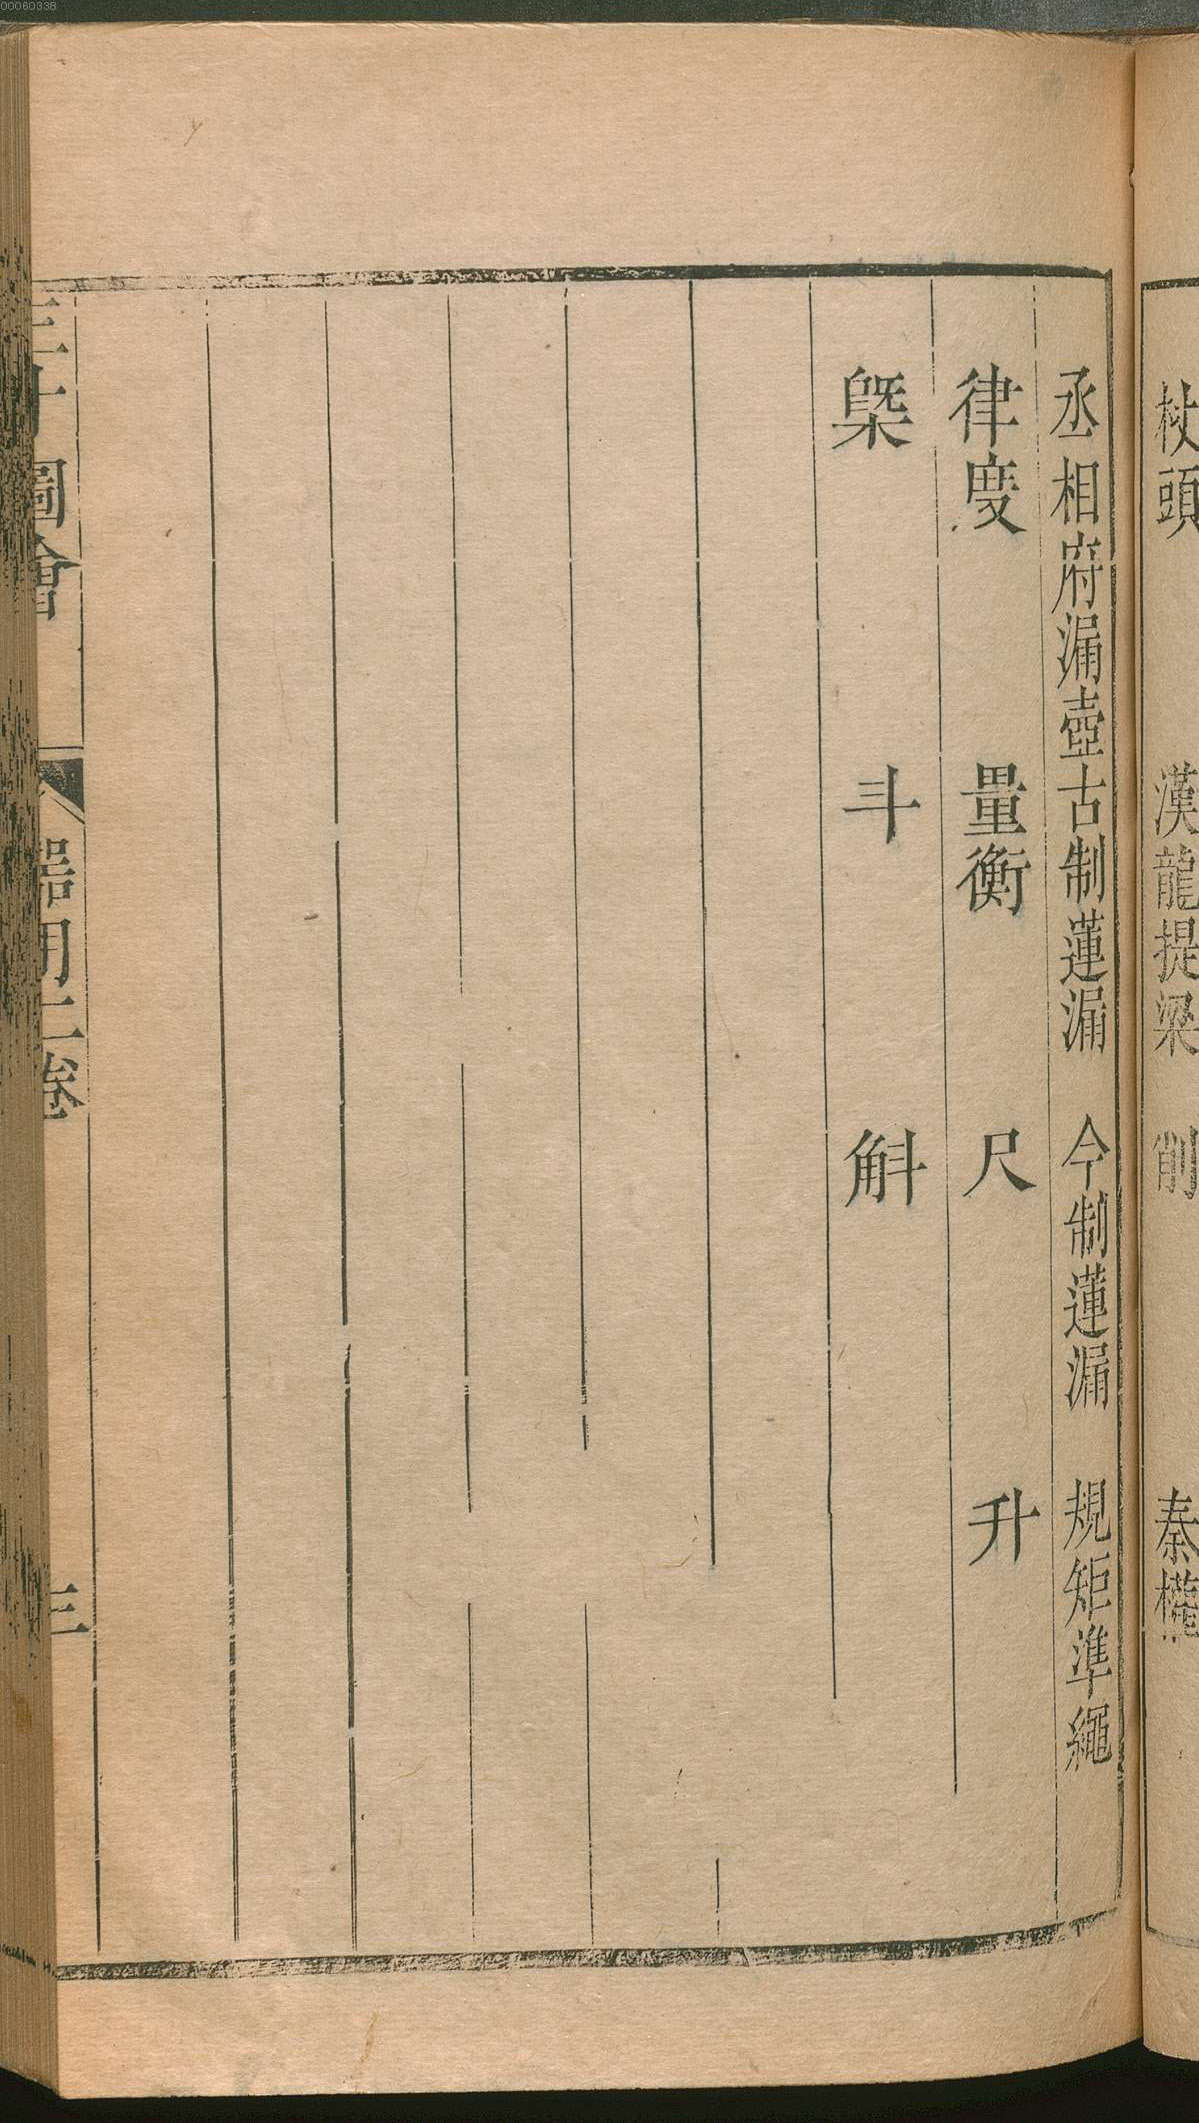 00060338
杖頭 漢龍提梁 削 秦權
丞相府漏壺 古制蓮漏 今制蓮漏 規矩準繩
律度 量衡 尺 升
槩 斗 斛
三才圖會 器用二卷 三